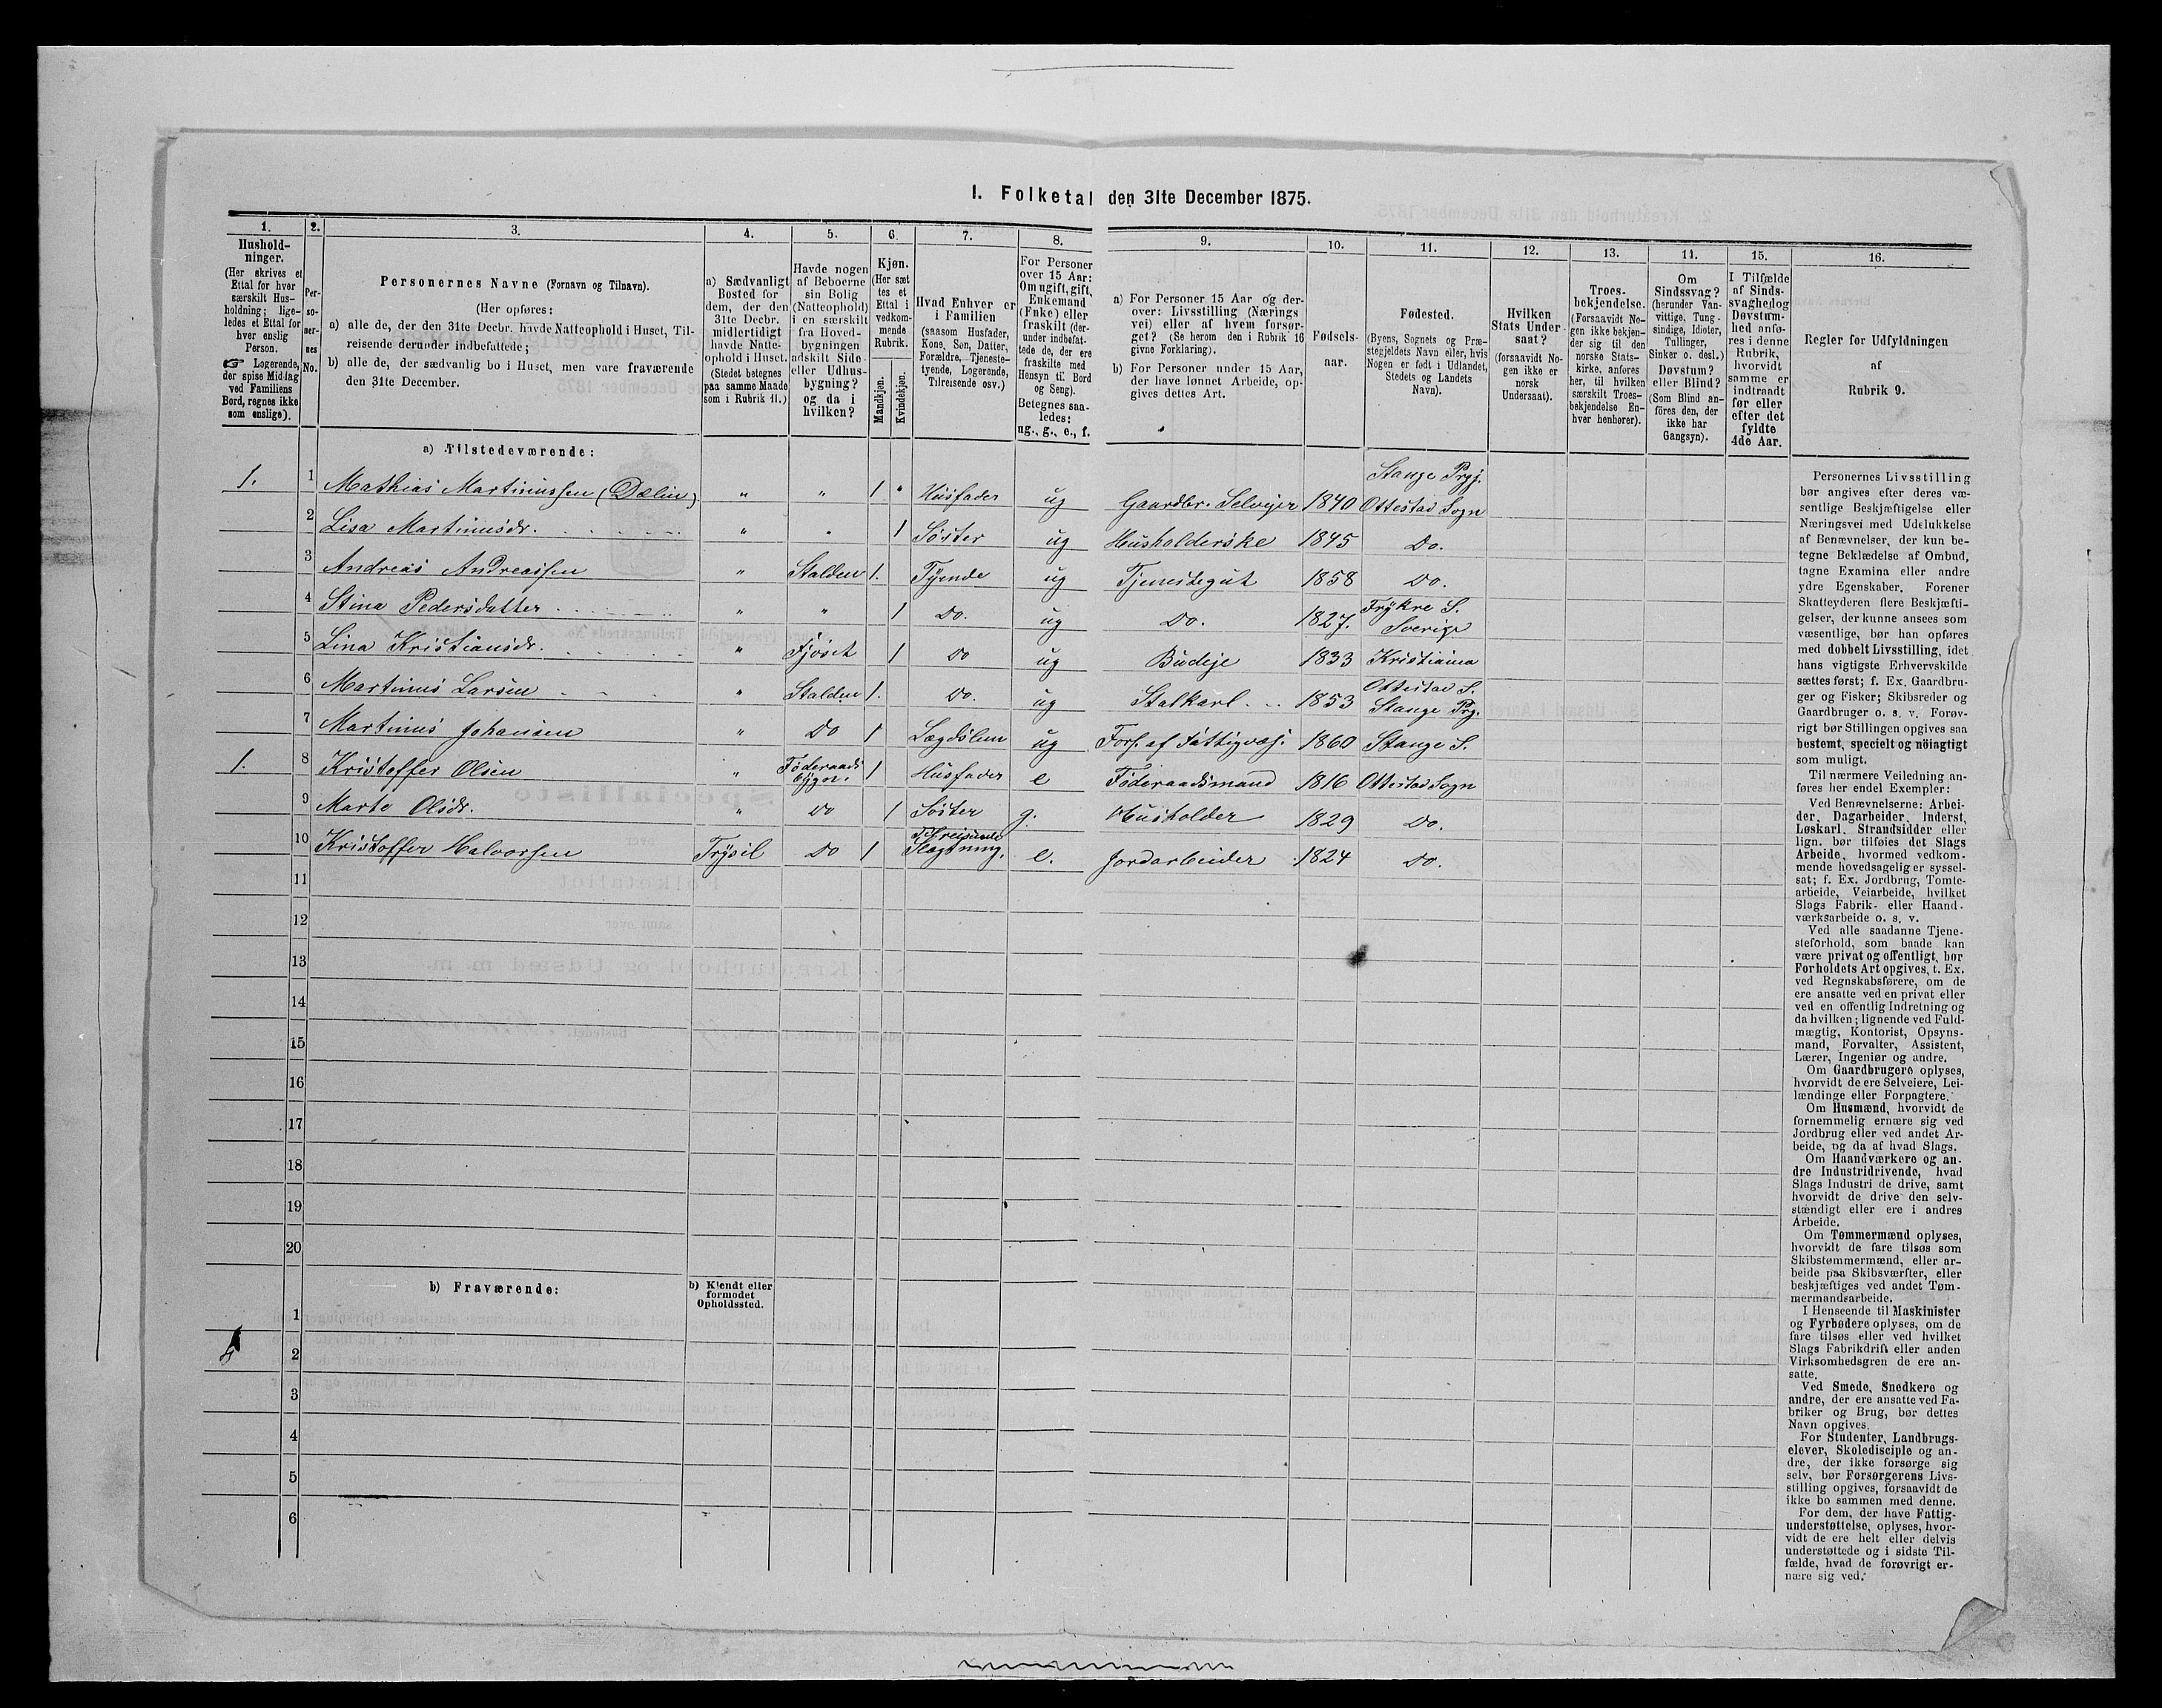 1. Folketal den 31te December 1875.
1. 2. 3. 4. 5. 6. 7. 8. 9. 10. 11. 12. 13. 14. 15. 16.
Husholdninger.
(Her skrives et
Ettal for hver
særskilt Hus-
holdning; lige-
ledes et Ettal for
hver enslig
Person.
Logerende,
der spise Middag
ved Familiens
Bord, regnes ikke
som enslige).
Per-
so-
ner-
nes
No.
Personernes Navne (Fornavn og Tilnavn).
(Her opføres:
a) alle de, der den 31te Decbr. havde Natteophold i Huset, Til-
reisende derunder indbefattede;
b) alle de, der sædvanlig bo i Huset, men vare fraværende
den 31te December.
a) Sædvanligt
Bosted for
dem, der den
31te Decbr.
midlertidigt
havde Natte-
ophold i Huset.
(Stedet betegnes
paa samme Maade
som i Rubrik 11.)
Havde nogen
af Beboerne
sin Bolig
(Natteophold)
i en særskilt
fra Hoved-
bygningen
adskilt Side-
eller Udhus-
bygning?
og da i
hvilken?
Kjøn.
(Her sæt-
tes et
Ettal i
vedkom-
mende
Rubrik.
Mandkjøn.
Kvindekjøn.
Hvad Enhver er
i Familien
(saasom Husfader,
Kone, Søn, Datter,
Forældre, Tjeneste-
tyende, Logerende,
Tilreisende osv.)
For Personer
over 15 Aar:
Om ugift, gift,
Enkemand
(Enke) eller
fraskilt (der-
under indbefat-
tede de, der ere
fraskilte med
Hensyn til Bord
og Seng).
Betegnes saa-
ledes:
ug., g., e., f.
a) For Personer 15 Aar og der-
over: Livsstilling (Nærings
vei) eller af hvem forsør-
get? (Se herom den i Rubrik 16
givne Forklaring).
b) For Personer under 15 Aar,
der have lønnet Arbeide, op-
gives dettes Art.
Fødsels-
aar.
Fødested.
(Byens, Sognets og Præ-
stegjeldets Navn eller, hvis
Nogen er født i Udlandet,
Stedets og Landets
Navn).
Hvilken
Stats Under-
saat?
(forsaavidt No-
gen ikke er
norsk
Undersaat).
Troes-
bekjendelse.
(Forsaavidt No-
gen ikke bekjen-
der sig til den
norske Stats-
kirke, anføres
her, til hvilken
særskilt Troes-
bekjendelse En-
hver henhører).
Om
Sindssvag?
(herunder Van-
vittige, Tung-
sindige, Idioter,
Tullinger,
Sinker o. desl.)
Døvstum?
eller Blind?
(Som Blind an-
føres den, der
ikke har
Gangsyn).
I Tilfælde
af Sinds-
svaghed og
Døvstum-
hed anfø-
res i denne
Rubrik,
hvorvidt
samme er
indtraadt
før eller
efter det
fyldte
4de Aar.
Regler for Udfyldningen
af
Rubrik 9.
a) Tilstedeværende:
1. 1 Mathias Martinussen (Dælin) " " 1 " Husfader ug Gaardbr. Selvejer 1840 Stange Prgj. Ottestad Sogn
2 Lisa Martinusdr. " " 1 Søster ug Husholderske 1845 Do.
3 Andreas Andreassen " Stalden 1. Tyende ug Tjenestegut 1858 Do.
4 Stina Pedersdatter " " 1 Do. ug Do. 1827. Frykre S. Sverige
5 Lina Kristiansdr. " Fjøset 1 Do ug Budeje 1833 Kristiania
6 Martinus Larsen " Stalden 1. Do. ug Stalkarl 1853 Ottestad S. Stange Prg.
7 Martinus Johansen " Do 1 Lægdslem ug Fors. af Fattigvæs. 1860 Stange S.
1. 8 Kristoffer Olsen " Føderaads bygn. 1 Husfader e Føderaadsmand 1816 Ottestad Sogn
9 Marte Olsdr. " Do 1 Søster g. Husholder 1829 Do.
10 Kristoffer Halvorsen Trysil Do 1 Tilreisende Slægtning. e. Jordarbeider 1824 Do.
11
12
13
14
15
16
17
18
19
20
b) Fraværende:
b) Kjendt eller
formodet
Opholdssted.
1
2
3
4
5
6
Personernes Livsstilling
bør angives efter deres væ-
sentlige Beskjæftigelse eller
Næringsvei med Udelukkelse
af Benævnelser, der kun be-
tegne Beklædelse af Ombud,
tagne Examina eller andre
ydre Egenskaber. Forener
Skatteyderen flere Beskjæfti-
gelser, der kunne ansees som
væsentlige, bør han opføres
med dobbelt Livsstilling, idet
hans vigtigste Erhvervskilde
sættes først; f. Ex. Gaardbru-
ger og Fisker; Skibsreder og
Gaardbruger o. s. v. Forøv-
rigt bør Stillingen opgives saa
bestemt, specielt og nöiagtigt
som muligt.
Til nærmere Veiledning an-
føres her endel Exempler:
Ved Benævnelserne: Arbei-
der, Dagarbeider, Inderst,
Løskarl, Strandsidder eller
lign. bør tilføies det Slags
Arbeide, hvormed vedkom-
mende hovedsagelig er syssel-
sat; f. Ex. Jordbrug, Tomte-
arbeide, Veiarbeide, hvilket
Slags Fabrik- eller Haand-
værksarbeide o. s. v.
Ved alle saadanne Tjene-
steforhold, som baade kan
være privat og offentligt, bør
Forholdets Art opgives, t. Ex.
ved Regnskabsførere, om de
ere ansatte ved en privat eller
ved en offentlig Indretning og
da hvilken; lignende ved Fuld-
mægtig, Kontorist, Opsyns-
mand, Forvalter, Assistent,
Lærer, Ingeniør og andre.
Om Gaardbrugere oplyses,
hvorvidt de ere Selveiere, Lei-
lændinge eller Forpagtere.
Om Husmænd, hvorvidt de
fornemmelig ernære sig ved
Jordbrug eller ved andet Ar-
beide, og da af hvad Slags.
Om Haandværkere og an-
dre Industridrivende, hvad
Slags Industri de drive, samt
hvorvidt de drive den selv-
stændigt eller ere i andres
Arbeide.
Om Tømmermænd oplyses,
hvorvidt de fare tilsøs som
Skibstømmermænd, eller ar-
beide paa Skibsværfter, eller
beskjæftiges ved andet Tøm-
mermandsarbeide.
I Henseende til Maskinister
og Fyrbødere oplyses, om de
fare tilsøs eller ved hvilket
Slags Fabrikdrift eller anden
Virksomhedsgren de ere an-
satte.
Ved Smede, Snedkere og
andre, der ere ansatte ved Fa-
briker og Brug, bør dettes
Navn opgives.
For Studenter, Landbrugs-
elever, Skoledisciple og an-
dre, der ikke forsørge sig
selv, bør Forsørgerens Livs-
stilling opgives, forsaavidt de
ikke bo sammen med denne.
For dem, der have Fattig-
understøttelse, oplyses, hvor-
vidt de ere helt eller delvis
understøttede og i sidste Til-
fælde, hvad de forøvrigt er-
nære sig ved.